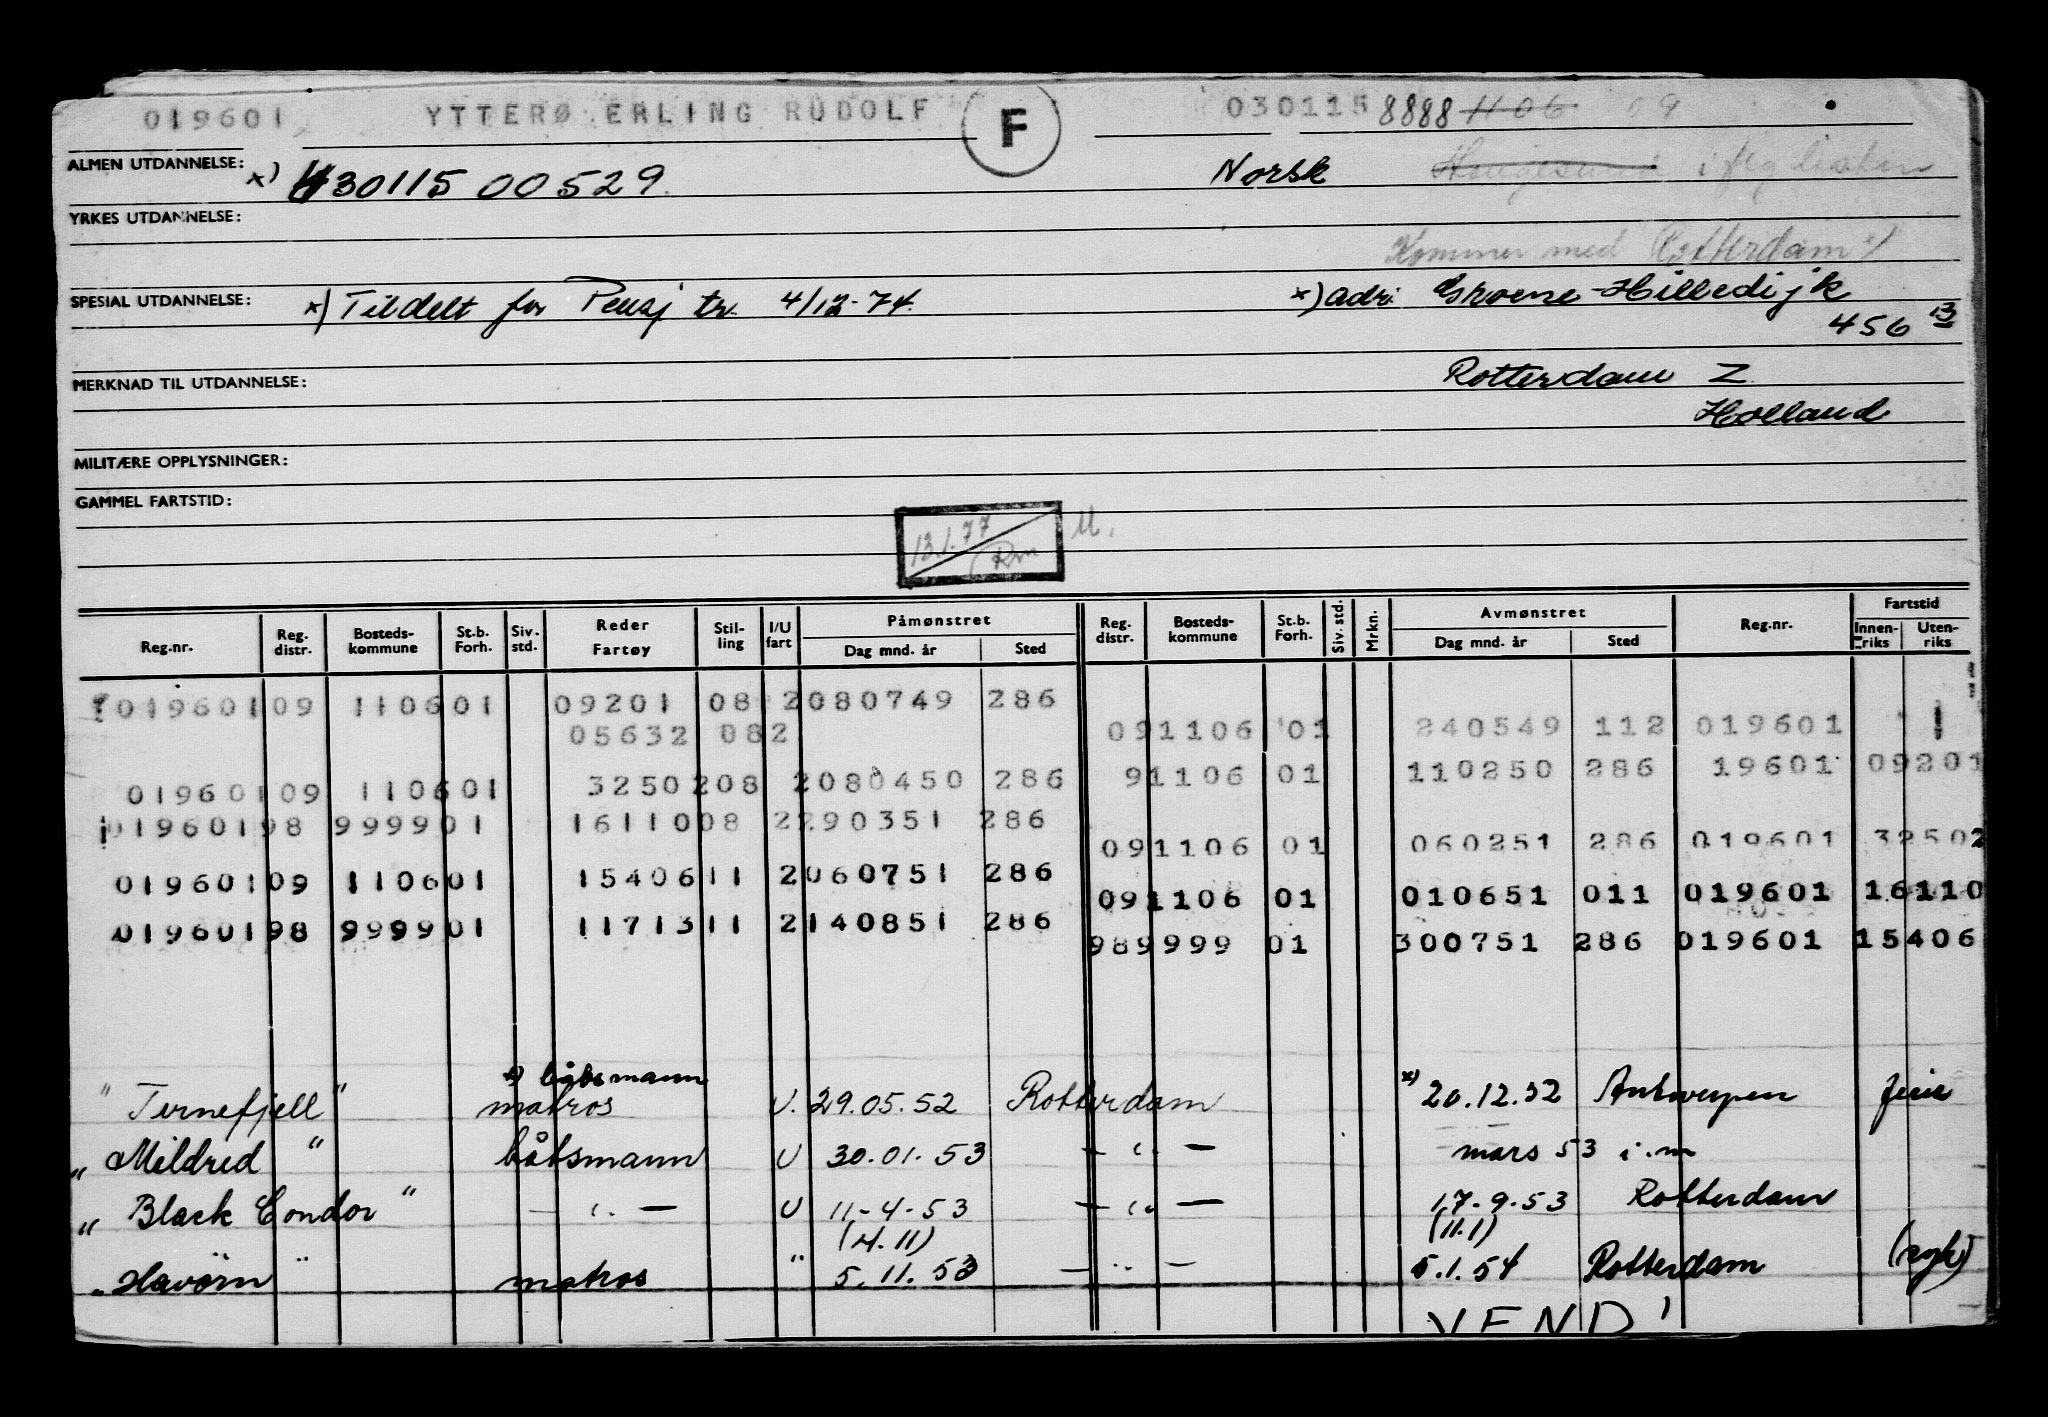 019601 YTTERØ ERLING RUDOLF F 030115 8888 1106 09
ALMEN UTDANNELSE: x) 030115 00529. Norsk Haugesund i flg
YRKES UTDANNELSE:
Kommer med Rotterdam x)
SPESIAL UTDANNELSE: x) Tildelt for Pensj tr. 4/12-74. x) adr: Groene-Hilledijk
456 B
MERKNAD TIL UTDANNELSE: Rotterdam Z
Holland
MILITÆRE OPPLYSNINGER:
GAMMEL FARTSTID:
13.1.77 M.
Reg.nr. Reg. distr. Bosteds-kommune St.b. Forh. Siv. std. Reder Fartøy Stil-ling I/U fart Påmønstret Dag mnd. år Sted Reg. distr. Bosteds-kommune St.b. Forh. Siv. std. Mrkn. Avmønstret Dag mnd. år Sted Reg.nr. Fartstid Innen-riks Uten-riks
019601 09 1106 01 09201 08 2 080749 286
05632 082 09 1106 01 240549 112 019601
019601 09 1106 01 32502 08 2 080450 286 9 1106 01 110250 286 19601 09201
019601 98 9999 01 16110 08 2 290351 286
09 1106 01 060251 286 019601 32502
019601 09 1106 01 15406 11 2 060751 286
09 1106 01 010651 011 019601 16110
019601 98 9999 01 11713 11 2 140851 286
98 9999 01 300751 286 019601 15406
x) båtsmann
" Ternefjell " matros U. 29.05.52 Rotterdam x) 20.12.52 Antwerpen ferie
" Mildred " båtsmann U 30.01.53 - " - mars 53 i.m
" Black Condor " - " - U 11-4-53 - " - 17-9-53 Rotterdam
(4.11) (11.1)
" Havörn " matros " 5.11.53 - " - 5.1.54 Rotterdam (syk)
VEND!